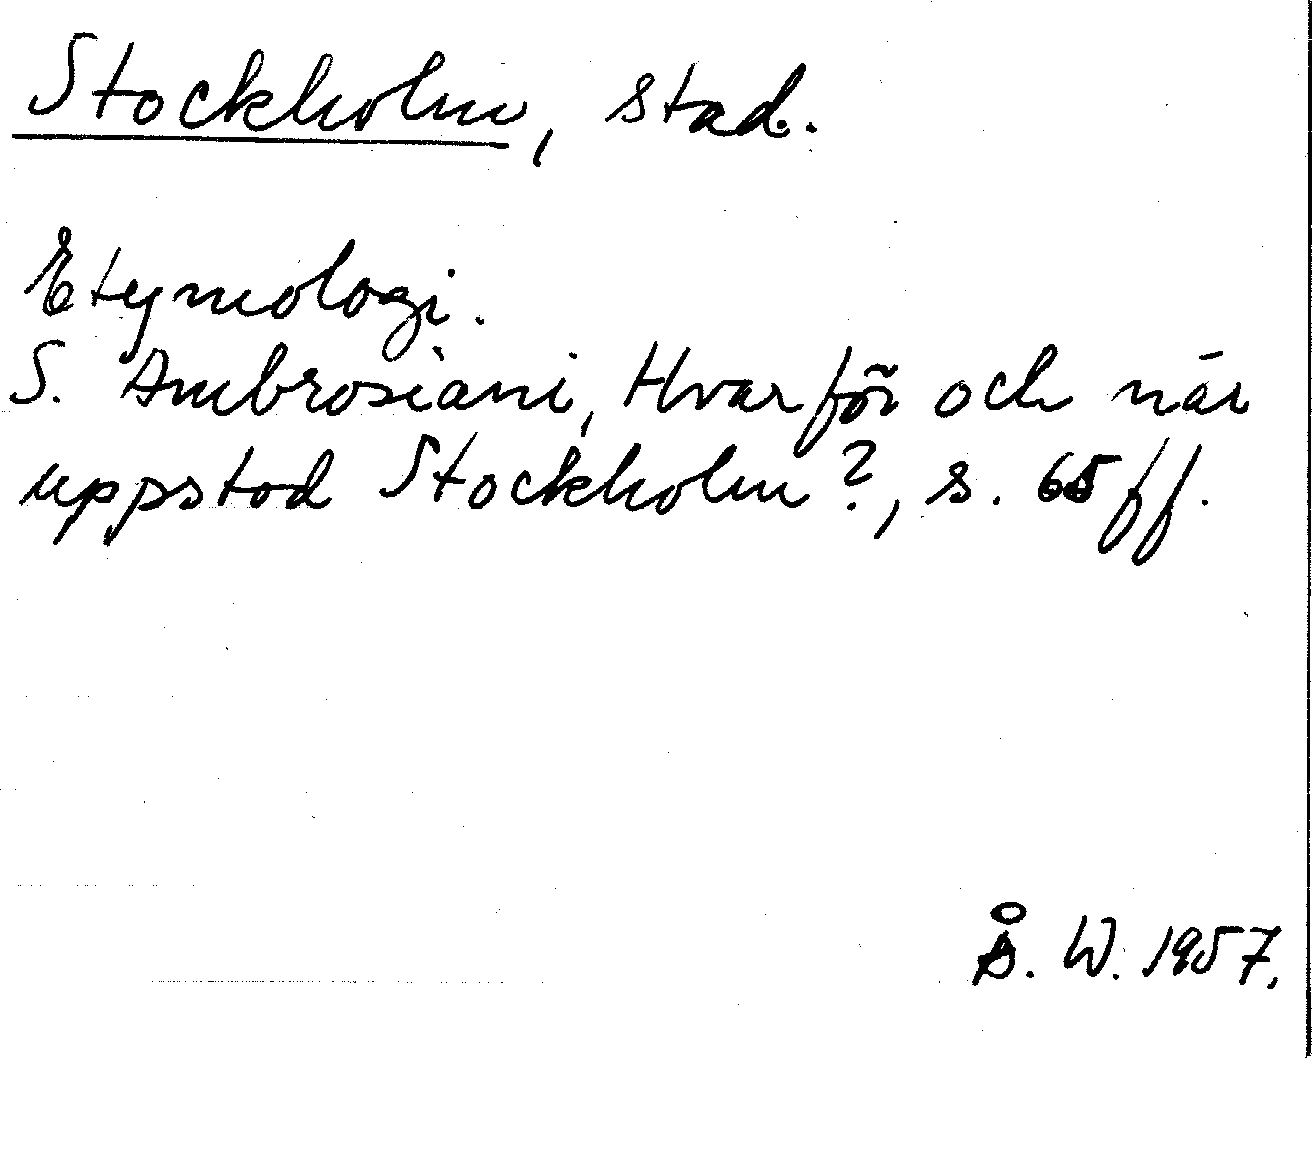 Stockholm, stad.
Etymologi.
S. Ambrosiani, Hvarför och när
uppstod Stockholm?, s. 65 ff.
Å. W. 1957.